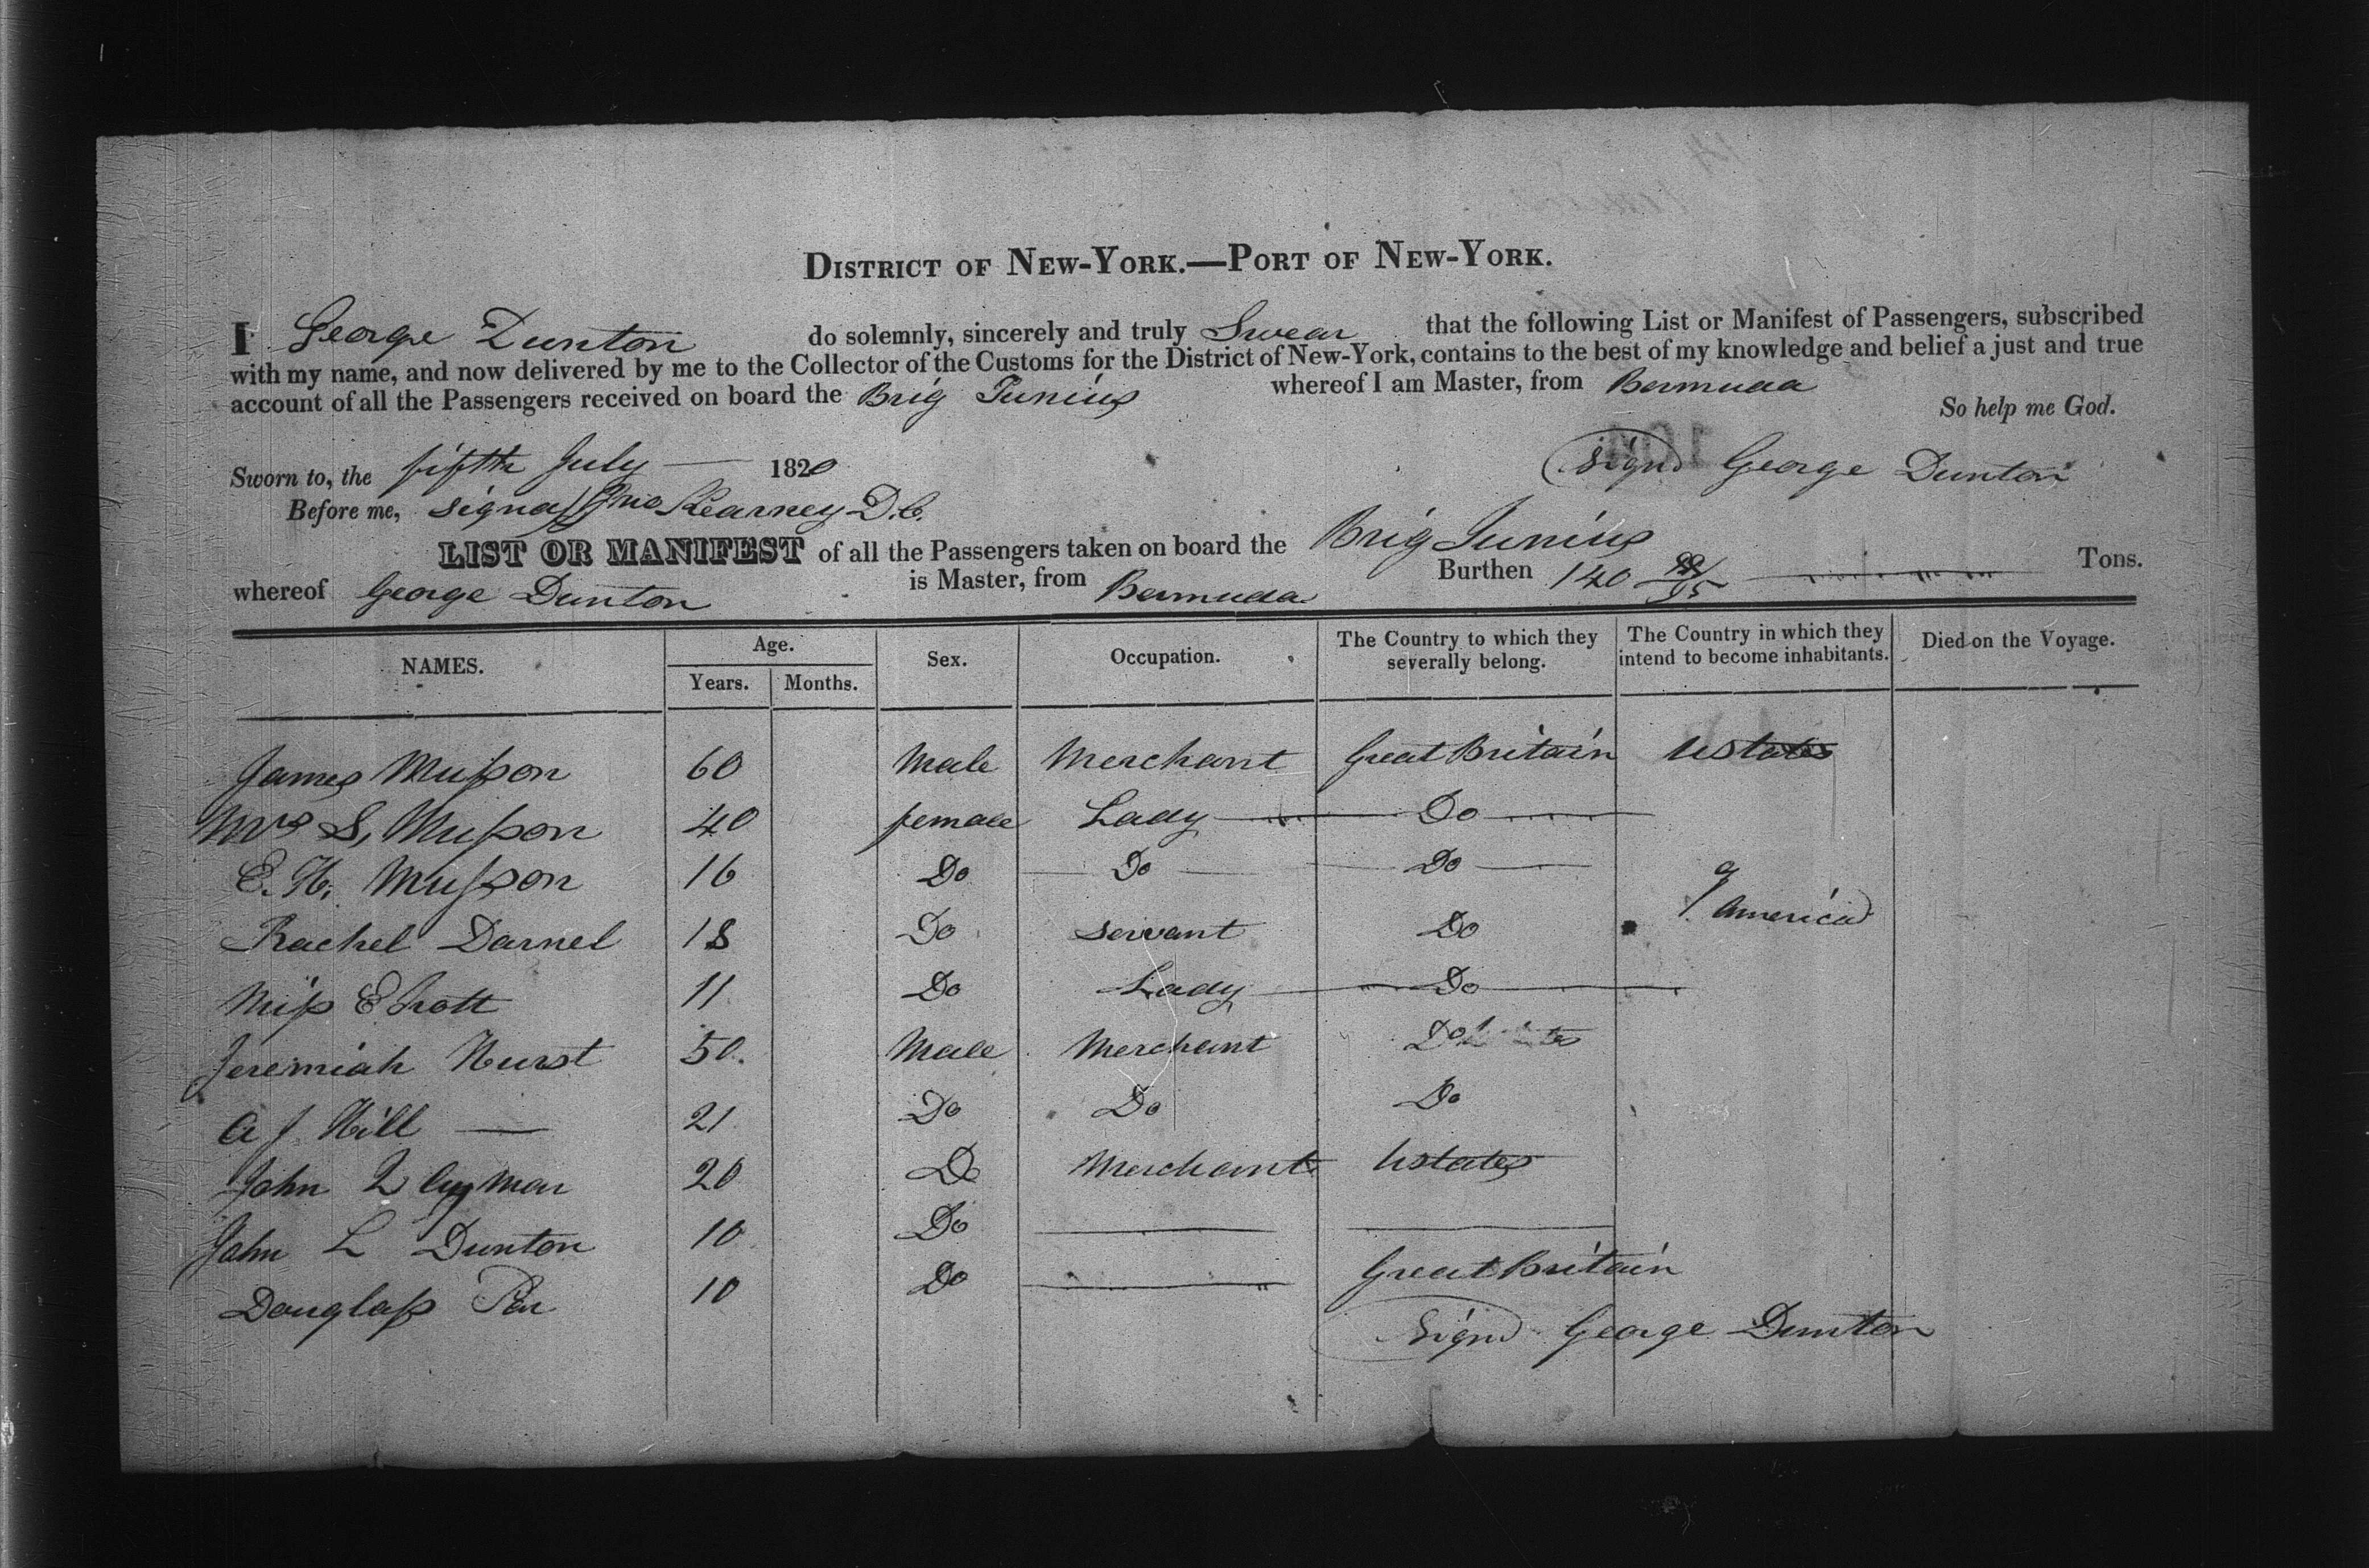 DISTRICT OF NEW-YORK.—PORT OF NEW-YORK.
I George Dunton do solemnly, sincerely and truly Swear that the following List or Manifest of Passengers, subscribed
with my name, and now delivered by me to the Collector of the Customs for the District of New-York, contains to the best of my knowledge and belief a just and true
account of all the Passengers received on board the Brig Junius whereof I am Master, from Bermuda
So help me God.
Sworn to, the fifth July — 1820
Signd George Dunton
Before me, signd Jno Kearney D.C.
LIST OR MANIFEST of all the Passengers taken on board the Brig Junius
whereof George Dunton is Master, from Bermuda Burthen 140 /95 Tons.
NAMES. Age. Years. Months. Sex. Occupation. The Country to which they severally belong. The Country in which they intend to become inhabitants. Died on the Voyage.
James Muſson 60 Male Merchant Great Britain UStates
Mrs S, Muſson 40 female Lady Do
E. H. Muſson 16 Do Do Do
of America
Rachel Darnel 18 Do Servant Do
Miſs E 11 Do Lady Do
Jeremiah Hurst 50 Male Merchant Do
A J Hill — 21 Do Do Do
John L 20 Do Merchant Ustates
John L Dunton 10 Do
Douglaſs 10 Do Great Britain
Signd George Dunton